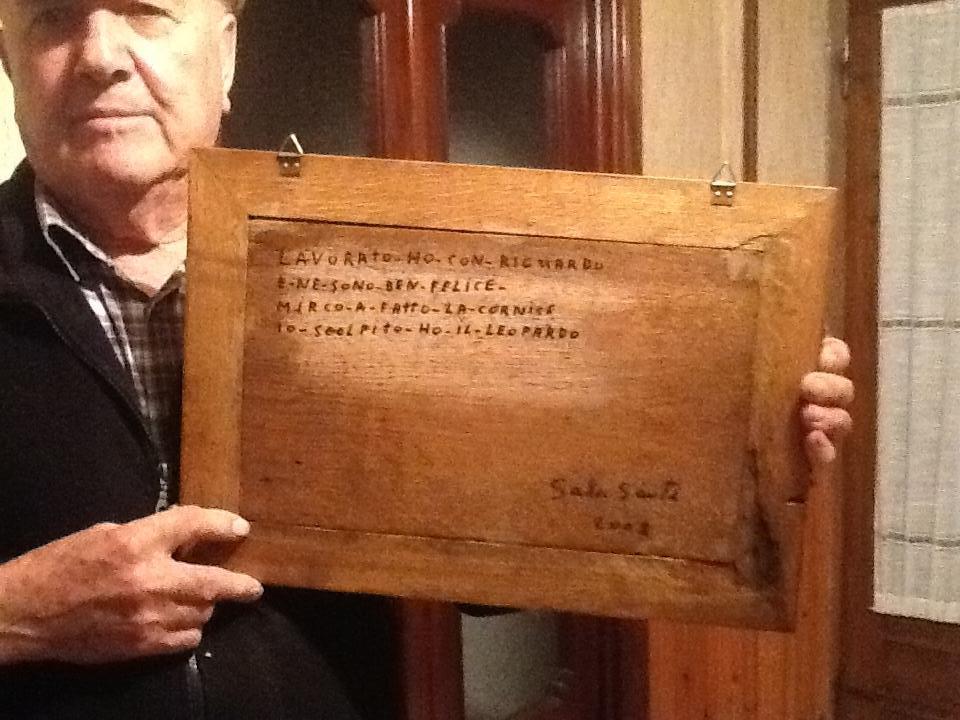 LAVORATO-HO-CON-RIGUARDO
E-NE-SONO-BEN-FELICE-
MIRCO-A-FATTO-LA-CORNICE
IO-SCOLPITO-HO-IL-LEOPARDO
Sala Santi
2002